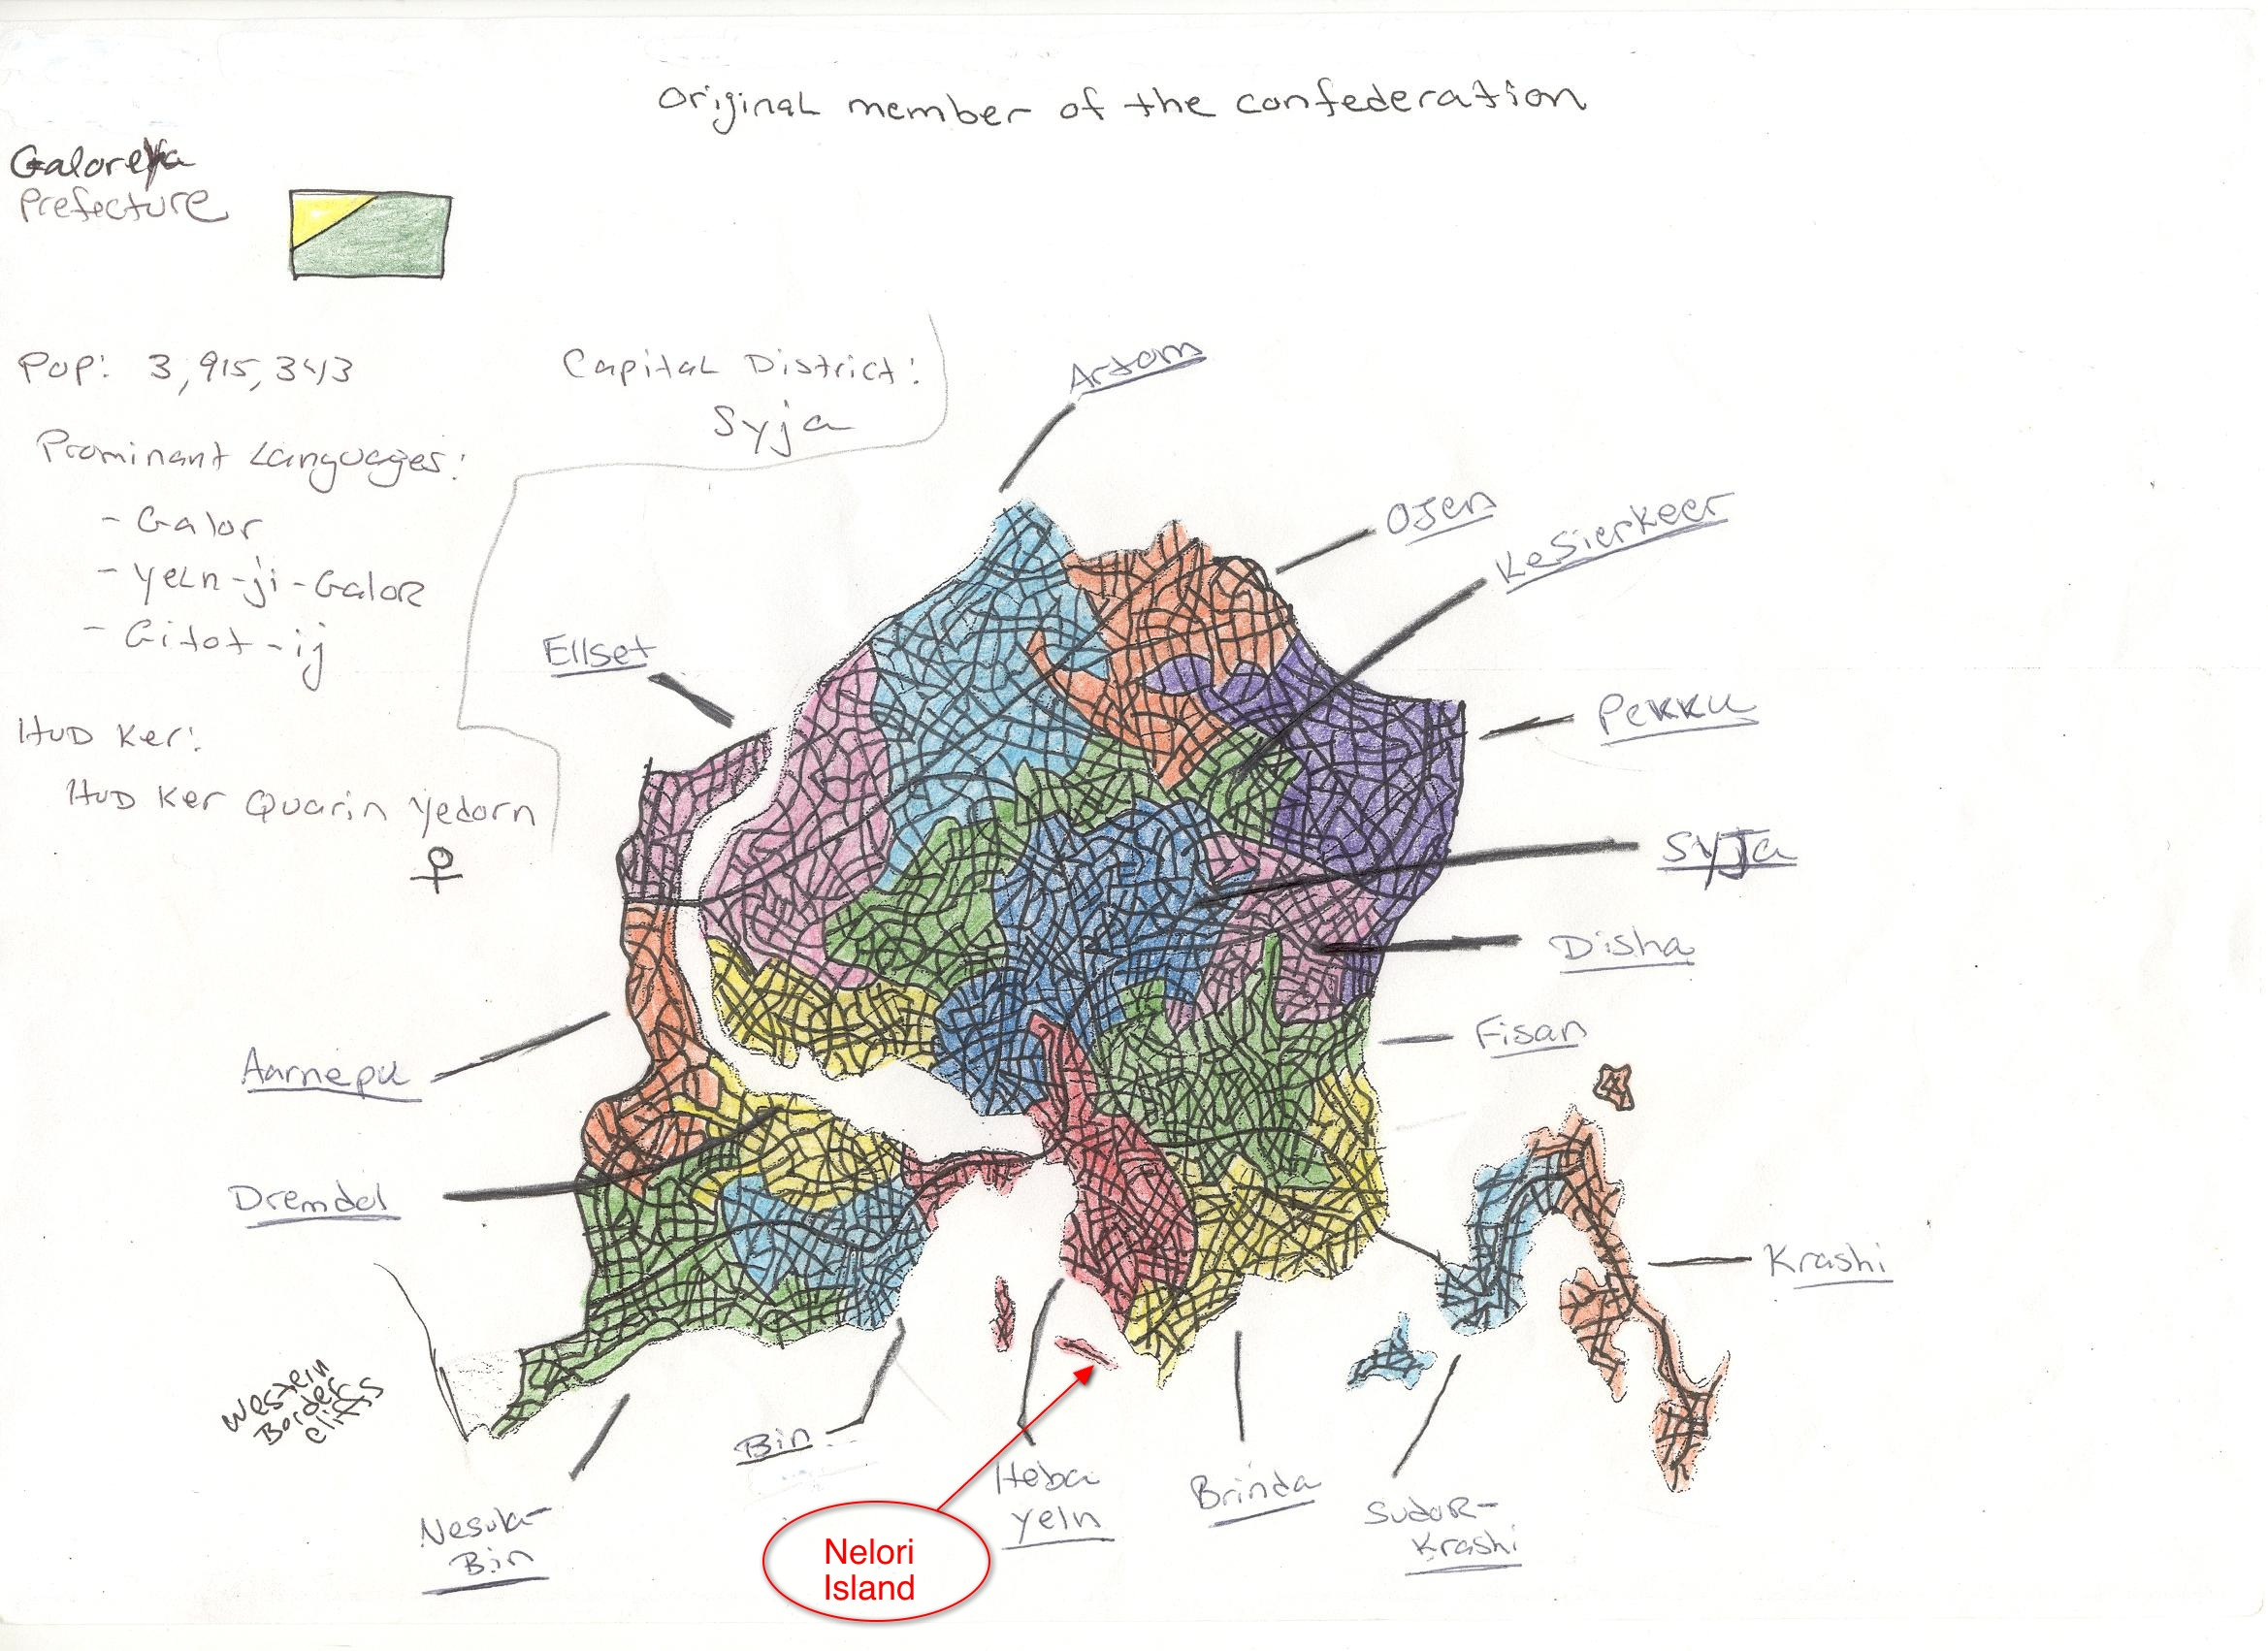 Original member of the confederation
Galoreya
Prefecture
Pop: 3,915,343
Capital District:
Syja
Prominant Languages:
- Galor
- Yeln-ji-Galor
- Gitot-ij
HUD Ker:
HUD Ker Quarin Yedorn
Artom
Ojen
Kesierkeer
Ellset
Pekku
Syja
Disha
Fisan
Aarnepu
Dremdel
Krashi
Western
Border
Cliffs
Bin
Heba
Yeln
Brinda
Sudor-
Krashi
Nesula-
Bin
Nelori
Island